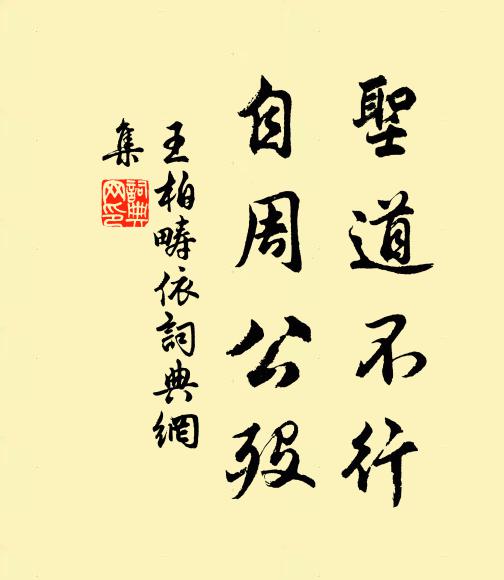 聖道不行
自周公歿
王柏疇依詞典網
集
詞典
网印